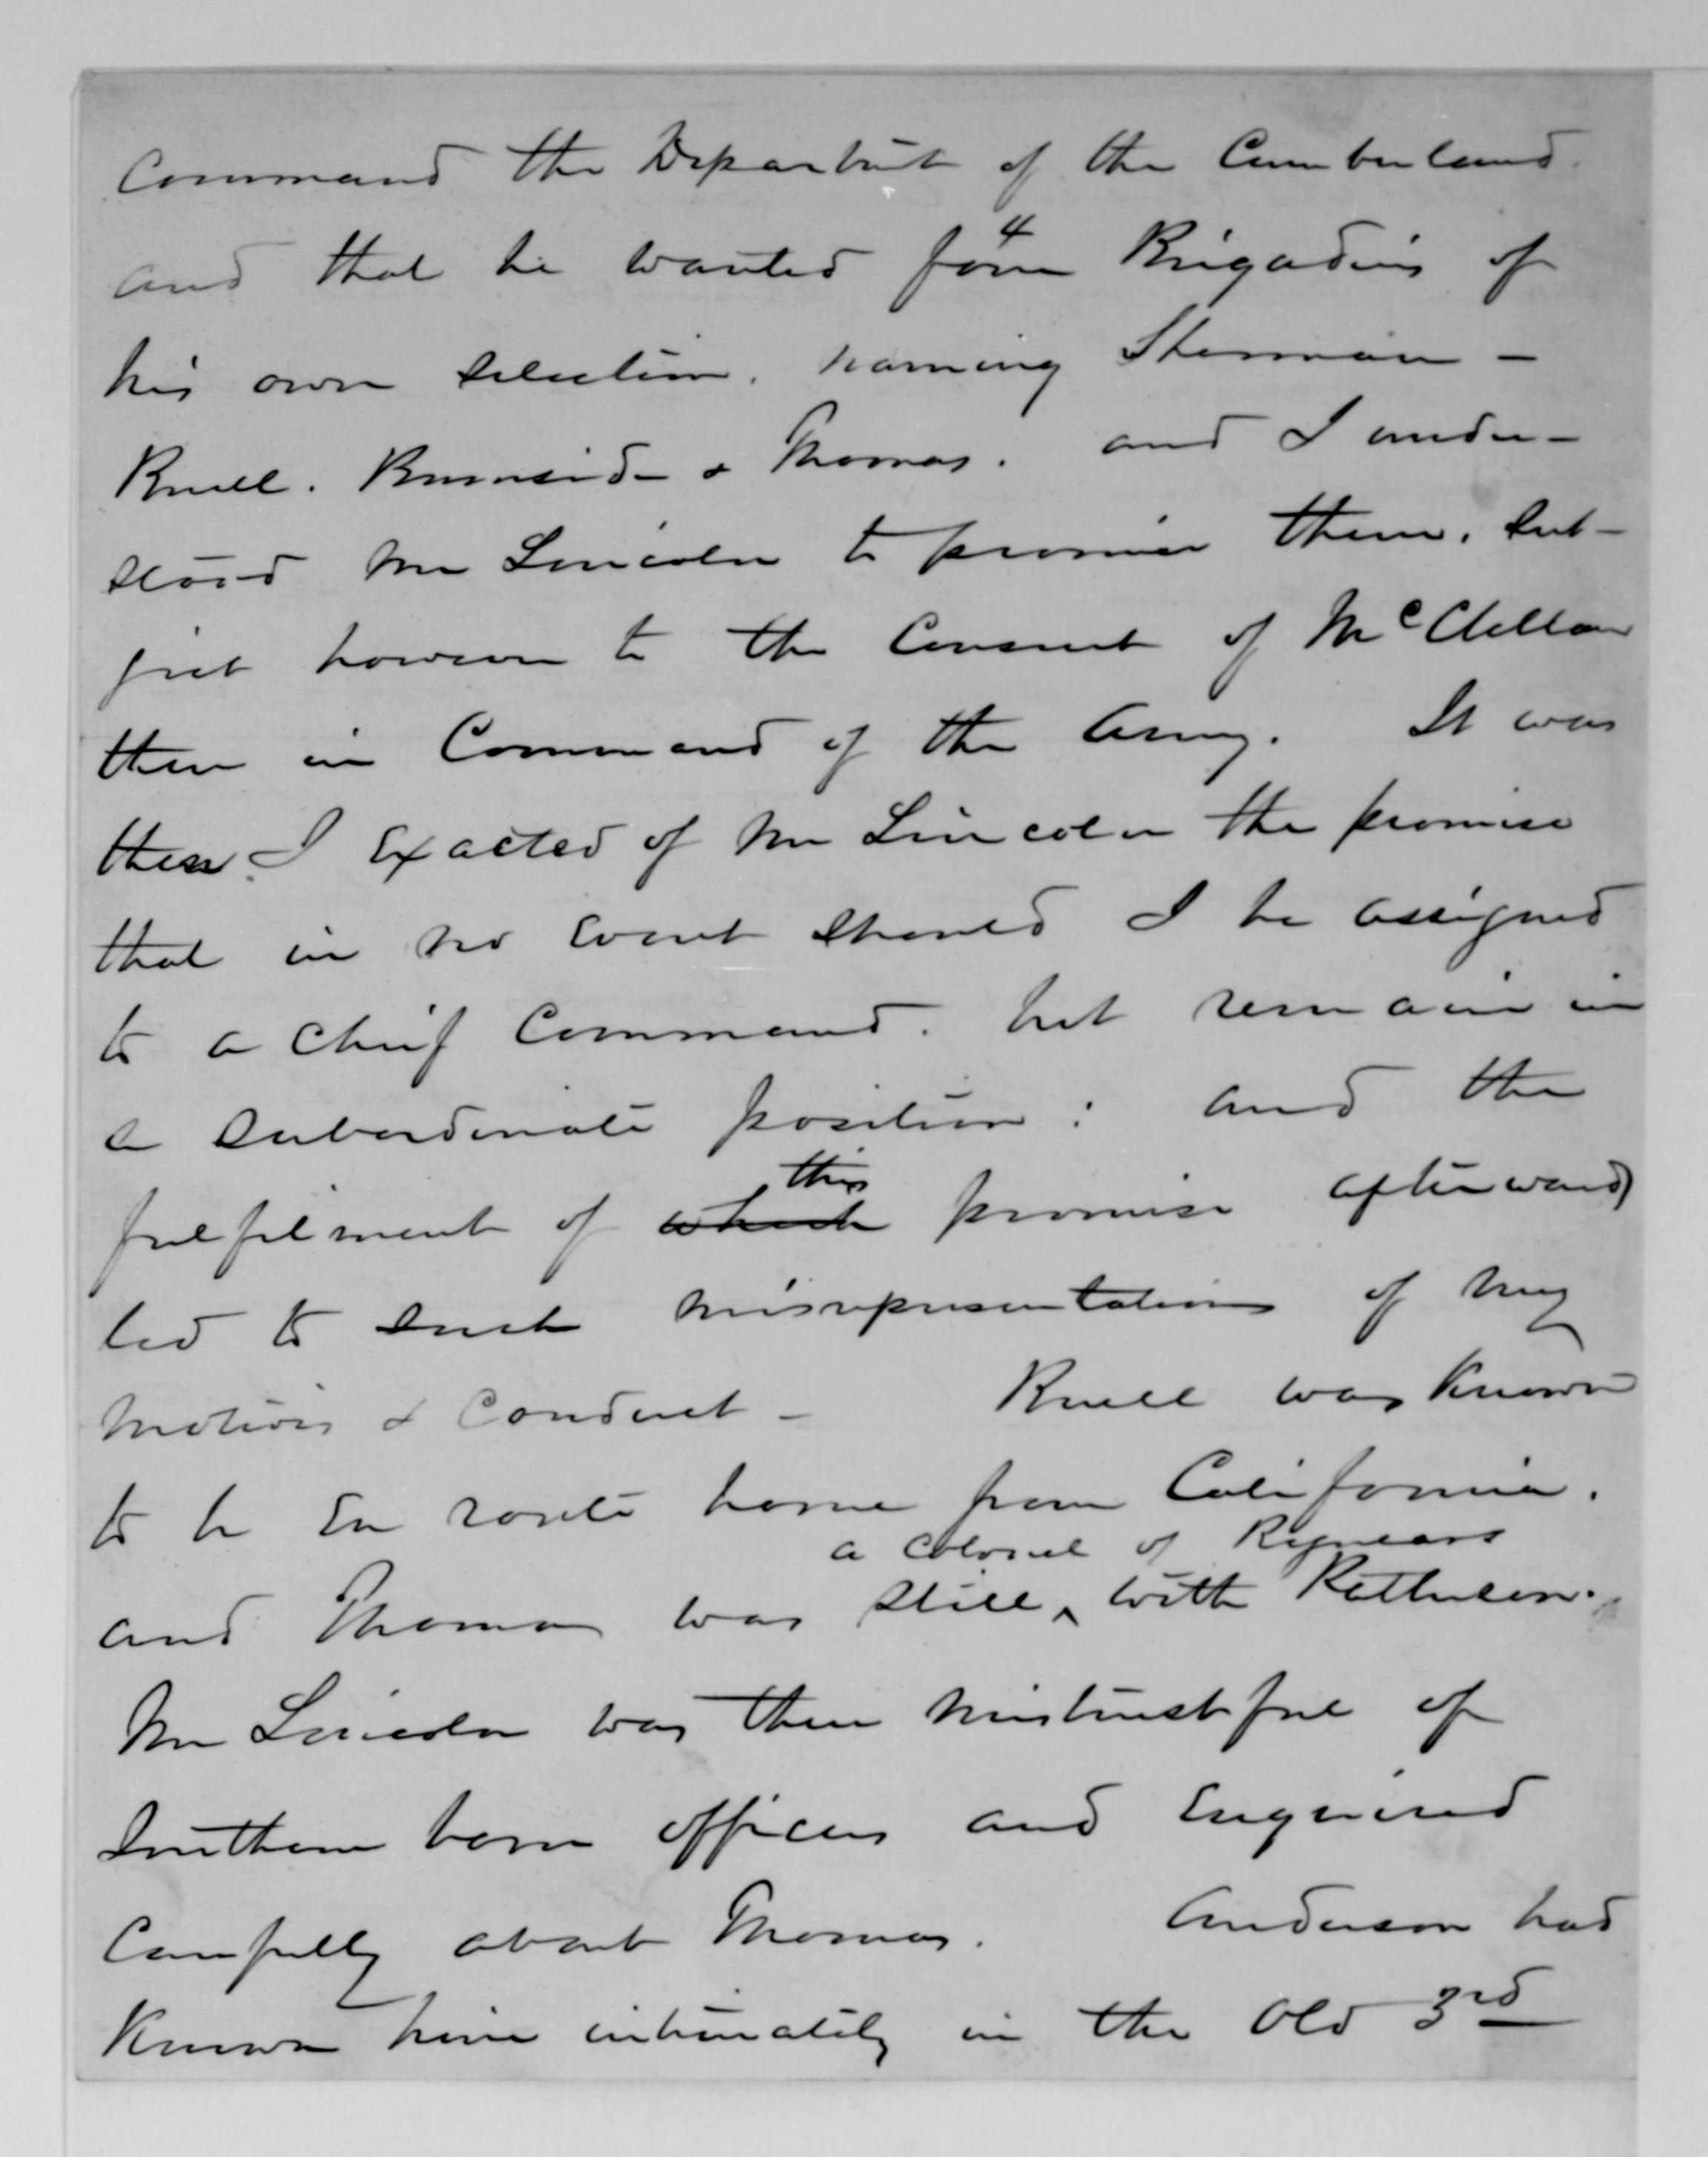 Command the Departmt of the Cumberland.
4
and that he wanted four Brigadiers of
his own selection, naming Sherman -
Buell. Burnside & Thomas. and I under-
stood Mr Lincoln to promise them, sub-
ject however to the consent of McClellan
then in Command of the Army. It was
then I exacted of Mr Lincoln the promise
that in no event should I be assigned
to a chief Command. but remain in
a subordinate position: and the
this
fulfilment of which promise afterwards
led to such misrepresentations of my
motives & Conduct - Buell was known
to be En route home from California.
a Colonel of Regulars
and Thomas was still ‸ with Patterson.
Mr Lincoln was then mistrustful of
Southern born officers and Enquired
Carefully about Thomas. Anderson had
Known him intimately in the Old 3rd